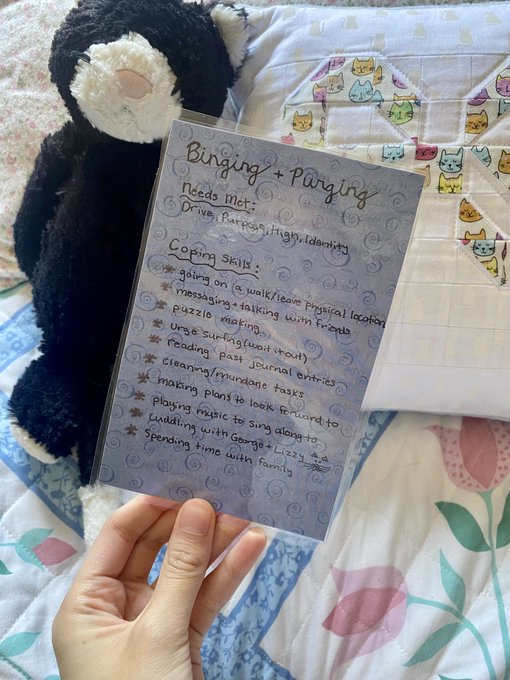 Binging + Purging
Needs Met:
Drive, Purpose, High, Identity
Coping Skills:
* going on a walk/leave physical location
* messaging + talking with friends
* puzzle making
* urge surfing (wait it out)
* reading past journal entries
* cleaning/mundane tasks
* making plans to look forward to
* playing music to sing along to
* cuddling with George + Lizzy
* spending time with family